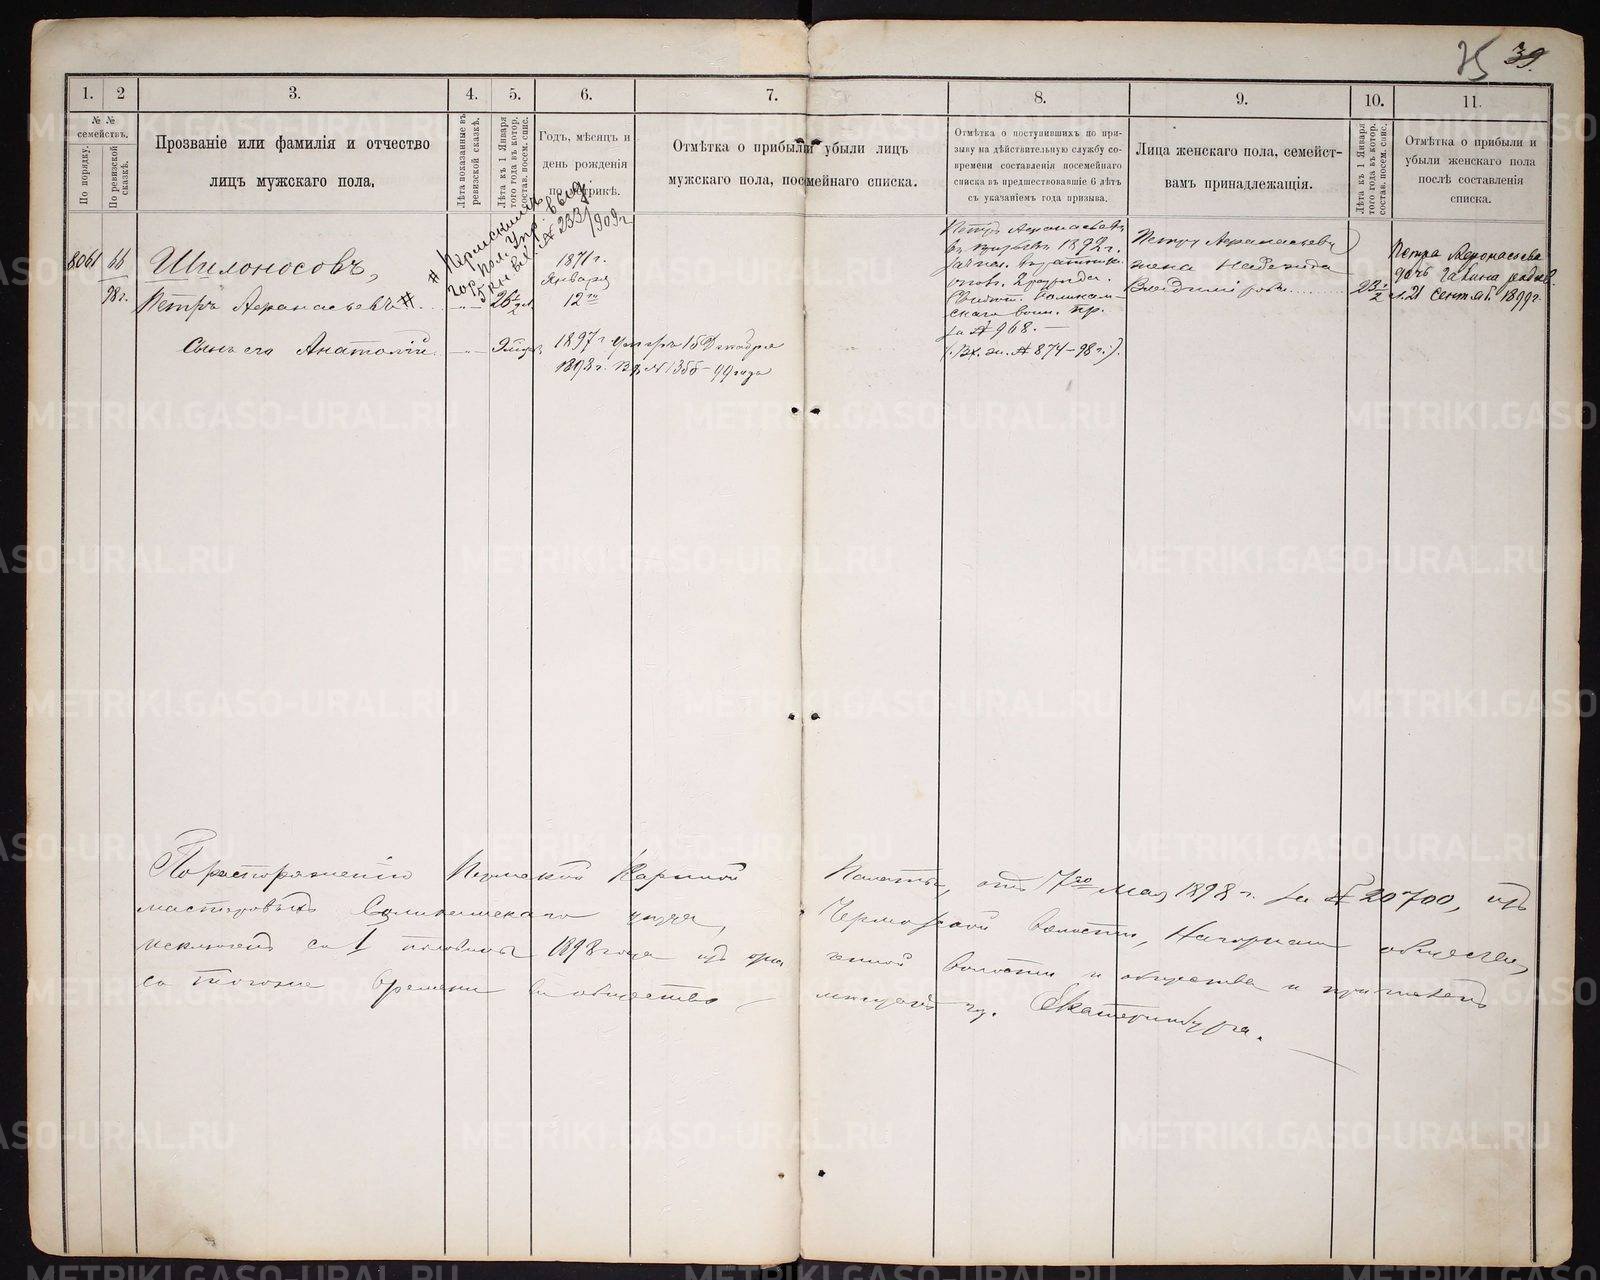 75 39.
1. 2 3. 4. 5. 6. 7. 8. 9. 10. 11.
№ №
семействъ.
По порядку.
По ревизской
сказкѣ.
Прозваніе или фамилія и отчество
лицъ мужскаго пола.
Лѣта показанные въ
ревизской сказкѣ.
Лѣта къ 1 Января
того года въ котор.
состав. посем. спис.
Годъ, мѣсяцъ и
день рожденія
по метрикѣ.
Отмѣтка о прибыли и убыли лицъ
мужскаго пола, посемейнаго списка.
Отмѣтка о поступившихъ по при-
зыву на дѣйствительную службу со-
времени составленія посемейнаго
списка въ предшествовавшіе 6 лѣтъ
съ указаніемъ года призыва.
Лица женскаго пола, семейст-
вамъ принадлежащія.
Лѣта къ 1 Января
того года въ котор.
состав. посем. спис.
Отмѣтка о прибыли и
убыли женскаго пола
послѣ составленія
списка.
# Пермскимъ
гор. пол. упр. выд.
5 л. № 233/909 г.
8061 66
98 г.
Шилоносовъ,
Петръ Афанасьевъ #
26 1/2
1871 г.
Января
12 го
Сынъ его Анатолій
1897 г умеръ 15 Декабря
1898 г. Вх. № 1355-99 года
Петръ Афанасьевъ
въ призывъ 1892 г.
зачисл. въ ратник.
опол. 2 разряда.
Свидѣт. Соликам-
скаго воин. пр.
за № 968. —
(Вх. № 874-98 г.).
Петра Афанасьева
жена Надежда
Владиміровна
23 1/2
Петра Афонасьева
дочь Галина родив.
21 сентяб. 1899 г.
По распоряженію Пермской Казенной Палаты, отъ 7го Мая 1898 г. за № 20700, изъ
мастеровыхъ Соликамскаго уѣзда, Чермозской волости, общества,
исключенъ съ 1 половины 1898 года изъ волости и общества и причисленъ
съ того же времени въ общество мещанъ гор. Екатеринбурга.
METRIKI.GASO-URAL.RU